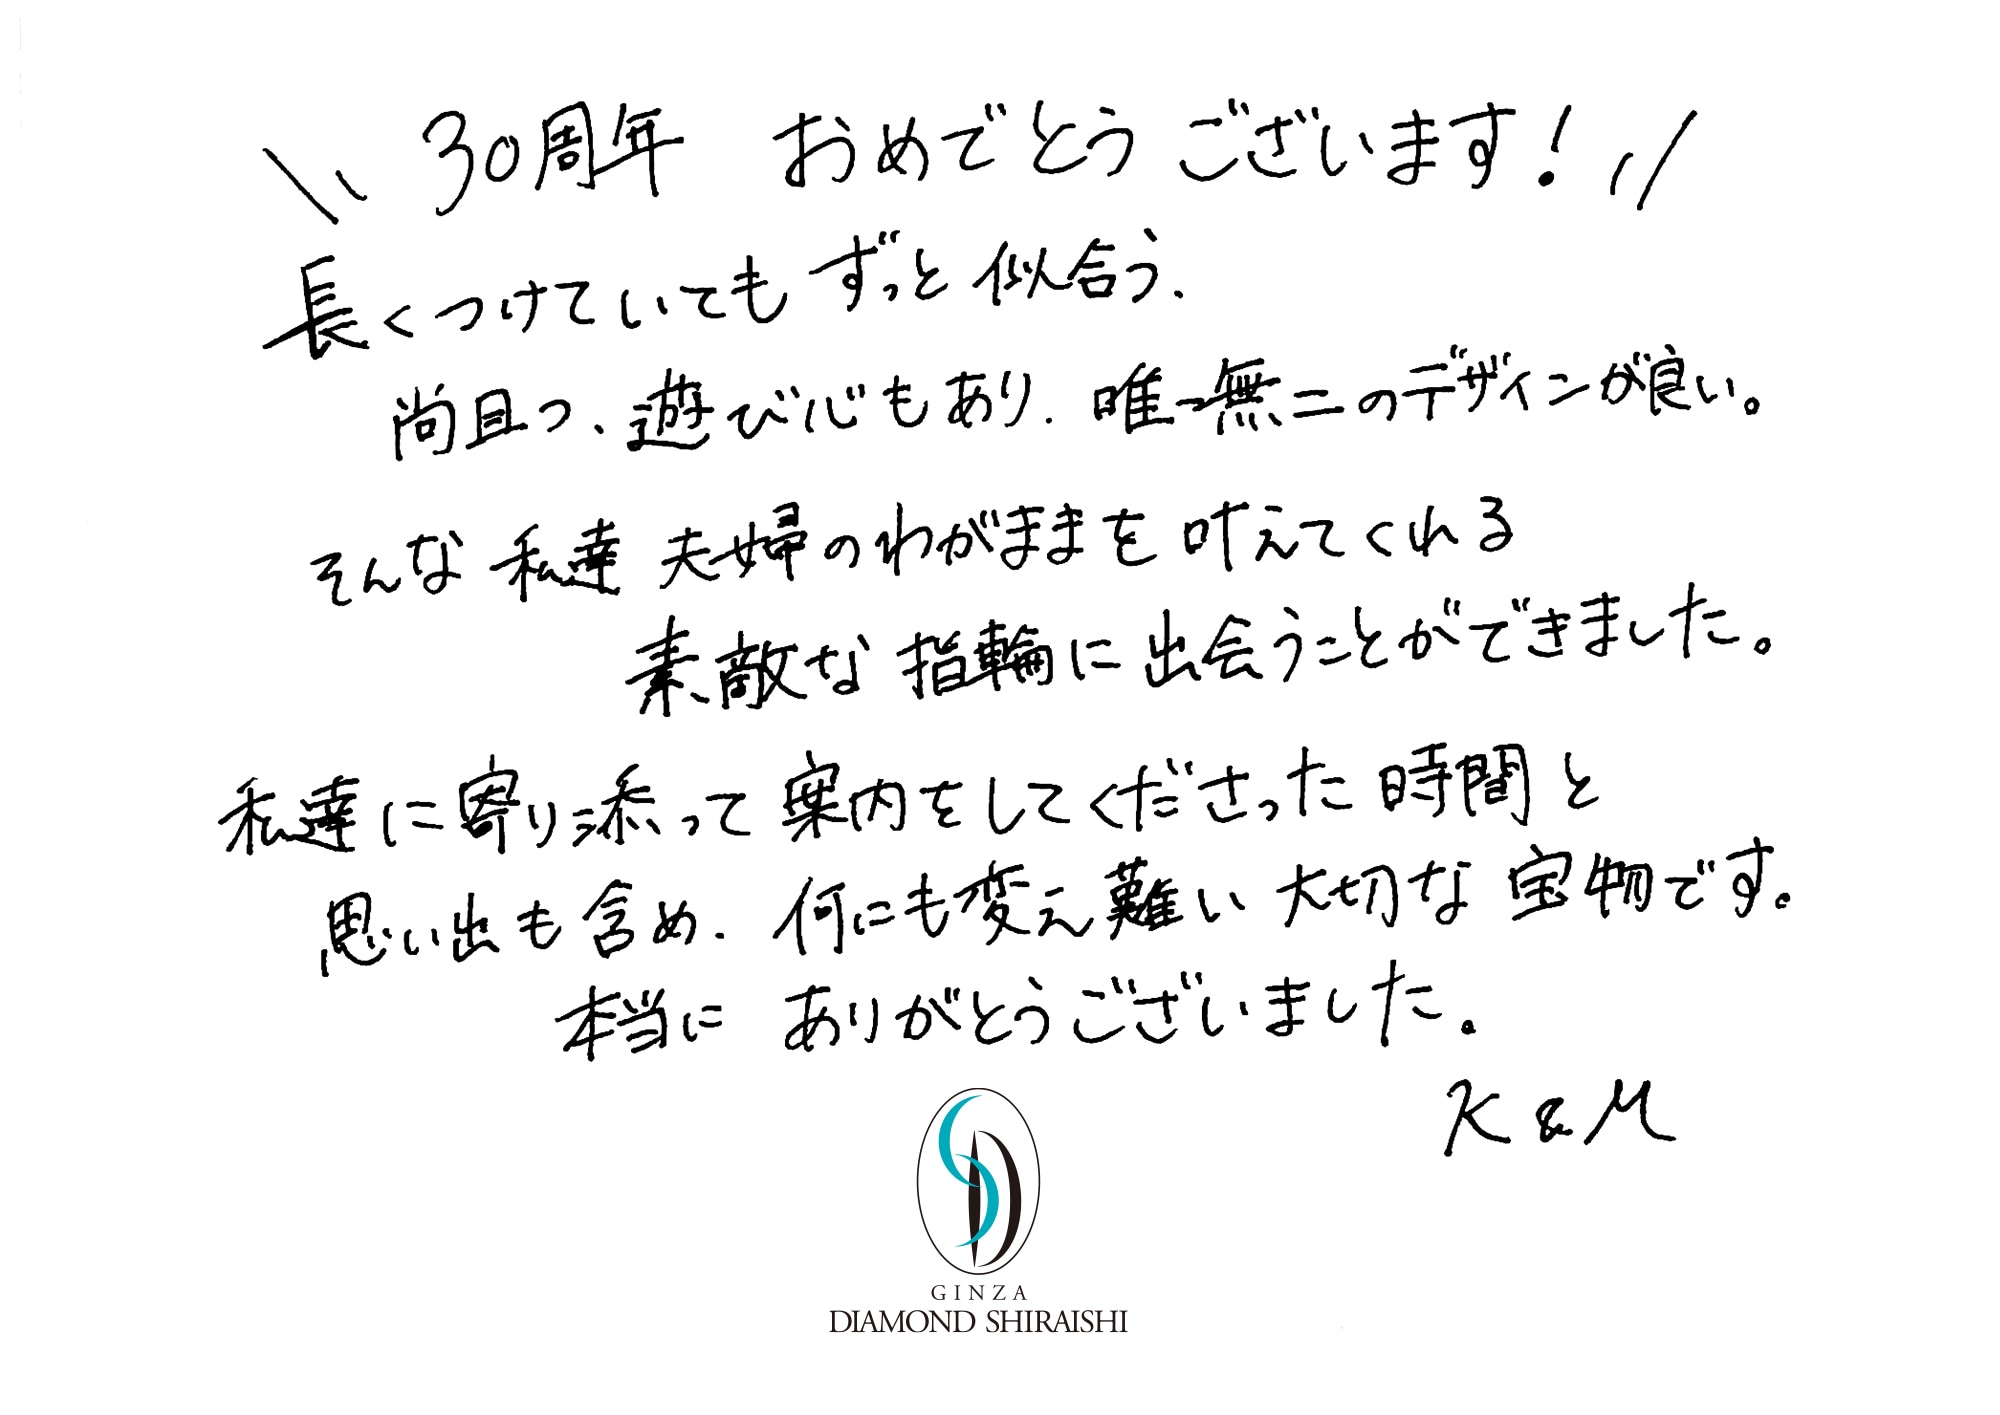 \\ 30周年 おめでとう ございます! //
長くつけていても ずっと 似合う、
尚且つ、遊び心もあり、唯一無二のデザインが良い。
そんな 私達 夫婦のわがままを 叶えてくれる
素敵な 指輪に 出会うことができました。
私達に寄り添って 案内をしてくださった 時間と
思い出も含め、何にも変え難い 大切な 宝物です。
本当に ありがとうございました。
K & M
GINZA
DIAMOND SHIRAISHI